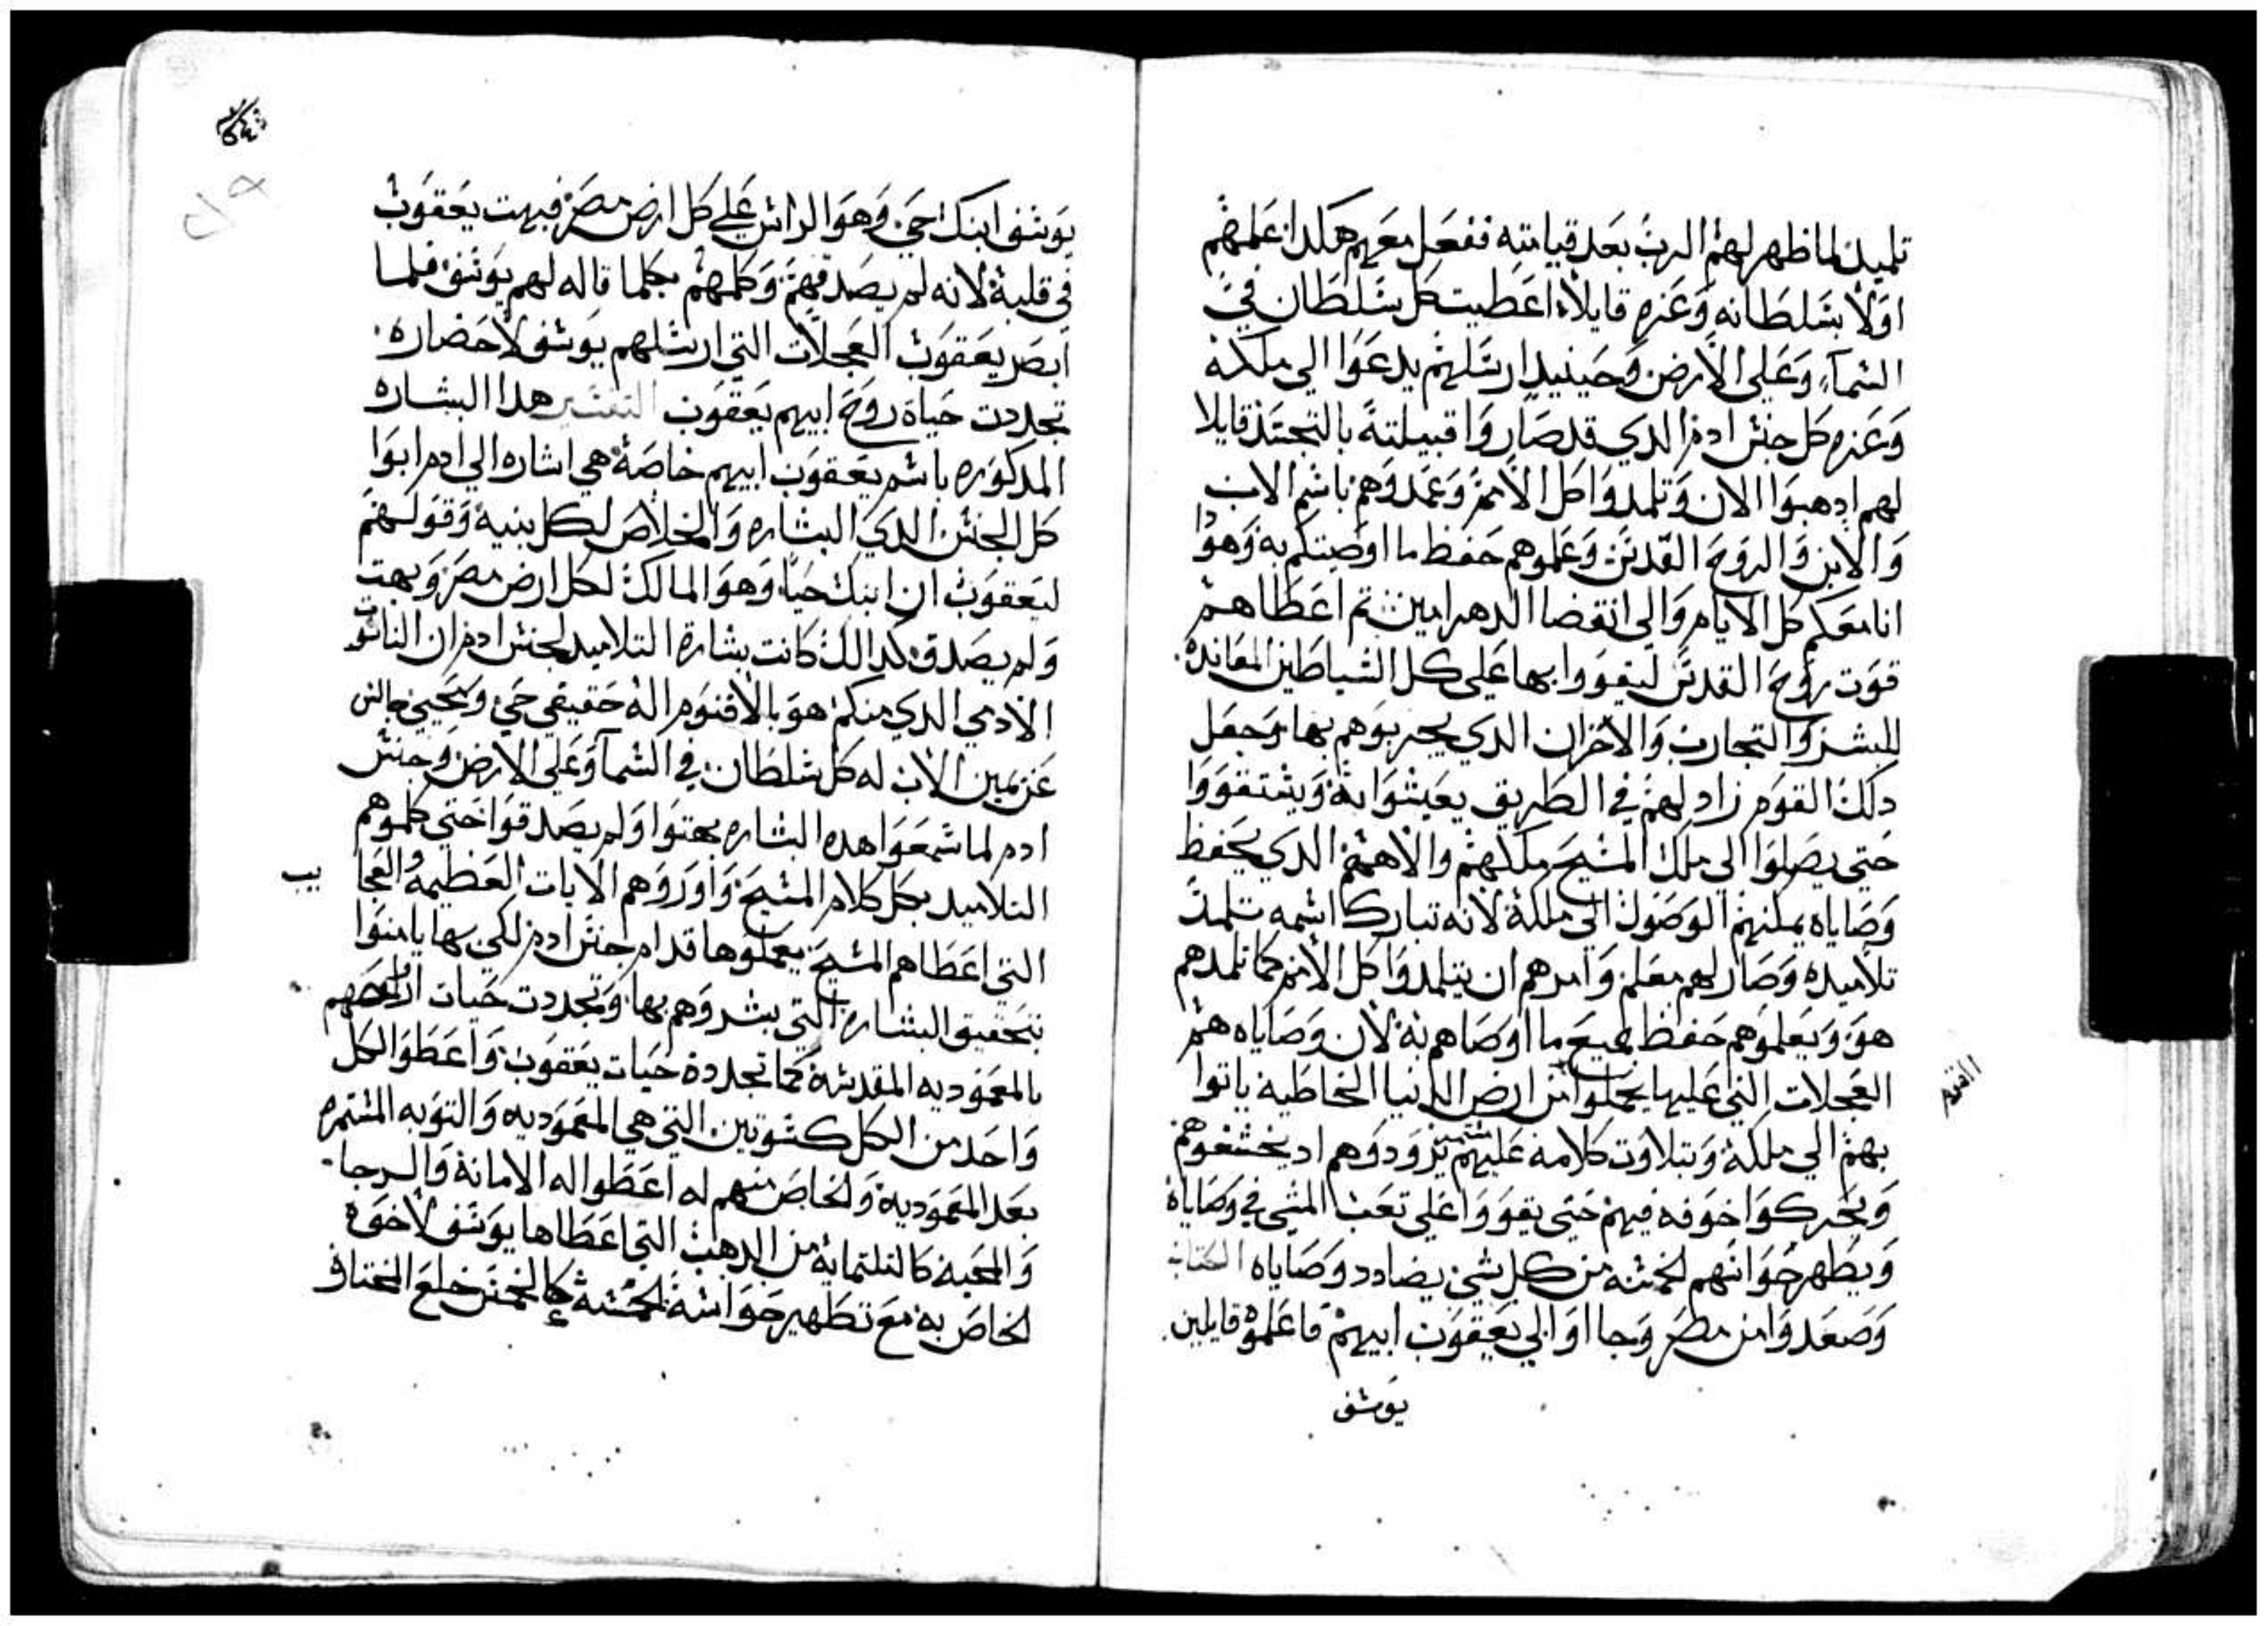 تلميذ لما ظهر لهم الرب بعد قيامته ففعل معهم هكدا اعلمهم
اولا بسلطانه وعزه قايلا اعطيت كل سلطان في
السمآء وعلي الارض وحينيد ارسلهم يدعوا الي ملكه
وعزه كل جنس ادم الدي قد صاروا قبيلته بالتجسد قايلا
لهم ادهبوا الان وتلمدوا كل الامم وعمدوهم باسم الاب
والابن والروح القدس وعلموهم حفظ ما اوصيتكم به وهودا
انا معكم كل الايام والي انقضا الدهر امين تم اعطاهم
قوت روح القدس ليقووا بها علي كل الشياطين المعانده
للبشر والتجارب والاحزان الدي يجربوهم بها وجعل
دلك القوم زاد لهم في الطريق يعيشوا به ويستقووا
حتي يصلوا الي ملك المسيح ملكهم والاههم الدي يحفظ
وصاياه يمكنهم الوصول الي ملكه لانه تبارك اسمه تلمد
تلاميده وصار لهم معلم وامرهم ان يتلمدوا كل الامم كما تلمدهم
هو ويعلموهم حفظ جميع ما اوصاهم به لان وصاياه هم
العجلات التي عليها يحملوا من ارض الدنيا الخاطيه ياتوا
القوم
بهم الي ملكه وبتلاوت كلامه عليهم يزودوهم اد يخشعوهم
ويحركوا خوفه فيهم حتي يقووا علي تعب المشي في وصاياه
ويطهر حواسهم لخمسه من كل شي يضادد وصاياه الكتاب
وصعدوا من مصر وجااوا الي يعقوب ابيهم فاعلموه قايلين
يوسف
يوسف ابنك حي وهو الرايس علي كل ارض مصر فبهت يعقوب
في قلبه لانه لم يصدقهم وكلمهم بكلما قاله لهم يوسف فلما
ابصر يعقوب العجلات التي ارسلهم يوسف لاحضاره
تجددت حياة روح ابيهم يعقوب التفسير هدا البشاره
المدكوره باسم يعقوب ابيهم خاصة هي اشاره الي ادم ابوا
كل الجنس الدي البشاره والخلاص لكل بنيه وقولهم
ليعقوب ان ابنك حيا وهو المالك لكل ارض مصر وبهت
ولم يصدق كدالك كانت بشارة التلاميد لجنس ادم ان الناسوت
الادمي الدي منكم هو بالاقنوم اله حقيقي حي ومحيي جالس
عن يمين الاب له كل سلطان في السما وعلي الارض وجنس
ادم لما سمعوا هده البشاره بهتوا ولم يصدقوا حتي كلموهم
التلاميد بكل كلام المسيح واوروهم الايات العظيمه العجايب
التي اعطاهم المسيح يعملوها قدام جنس ادم لكي بها يامنوا
بتحقيق البشاره التي بشروهم بها وتجددت حيات ارواحهم
بالمعموديه المقدسه كما تجددة حيات يعقوب واعطوا لكل
واحد من الكل كسوتين التي هي المعموديه والتوبه المستمره
بعد المعموديه والخاص منهم له اعطوا له الامانة والرجا
والمحبه كالتلتمايه من الدهب التي اعطاها يوسف لاخوه
لخاص به مع تطهير حواسه لخمسه كالخمس خلع المختاره